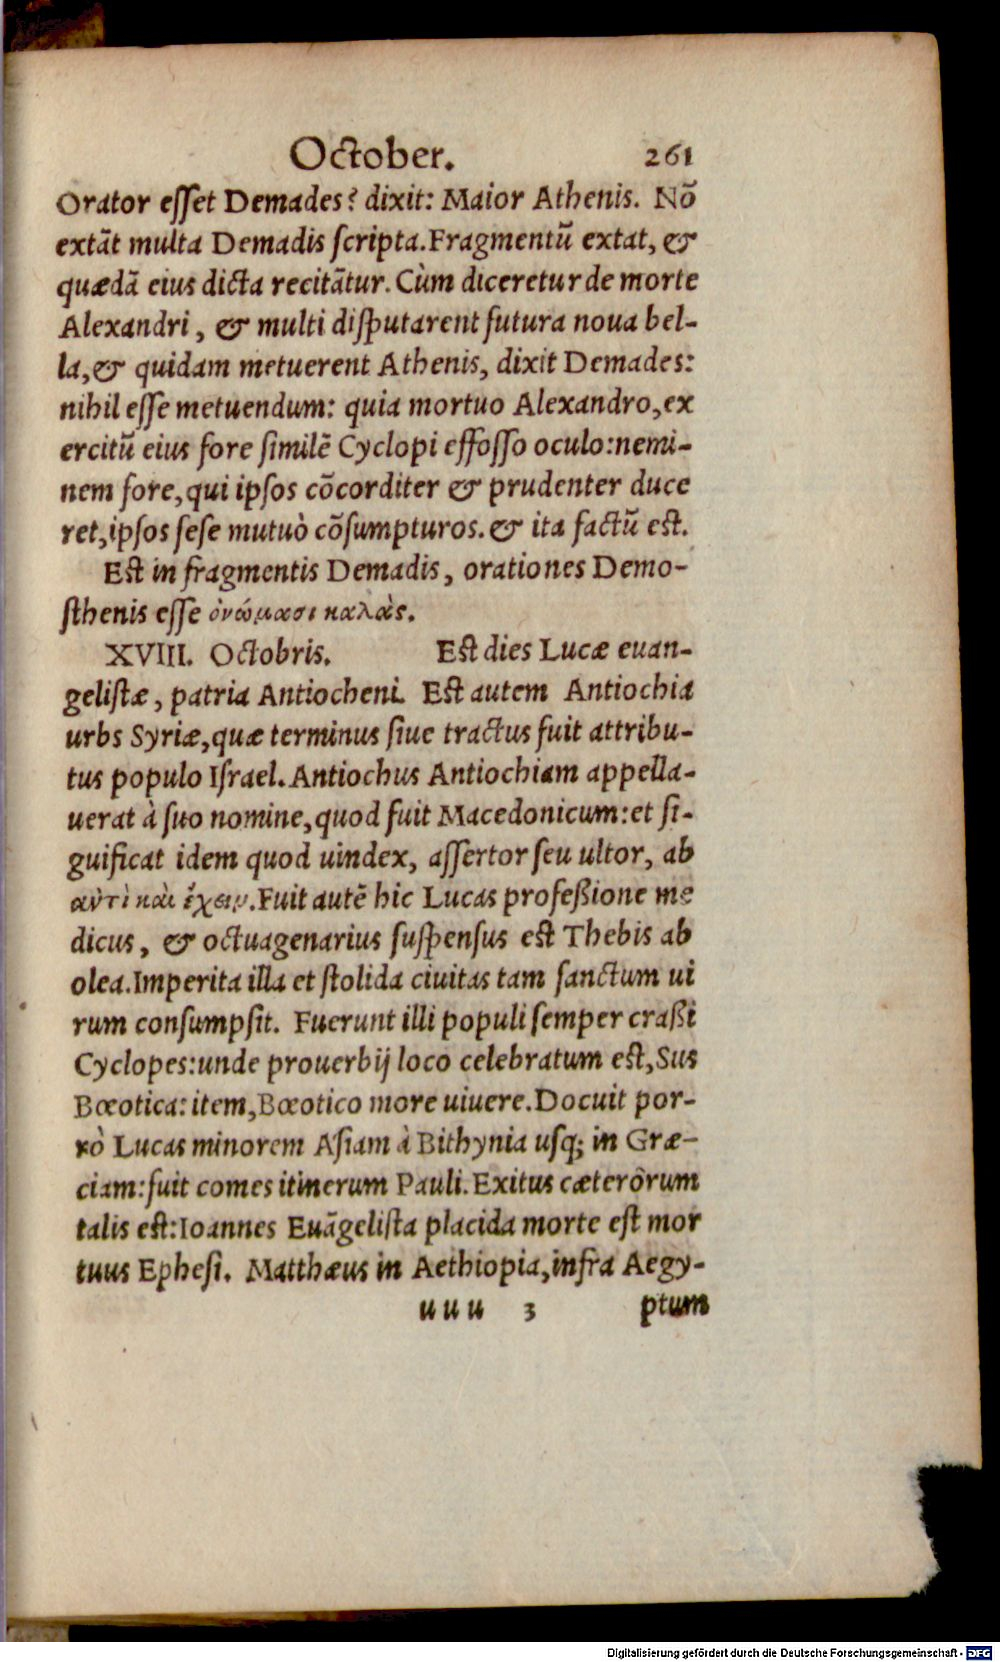 October. 261
Orator eſſet Demades? dixit: Maior Athenis. Nõ
extãt multa Demadis ſcripta. Fragmentũ extat, &
quædã eius dicta recitãtur. Cùm diceretur de morte
Alexandri, & multi diſputarent futura noua bel-
la, & quidam metuerent Athenis, dixit Demades:
nihil eſſe metuendum: quia mortuo Alexandro, ex
ercitũ eius fore ſimilẽ Cyclopi effoſſo oculo: nemi-
nem fore, qui ipſos cõcorditer & prudenter duce
ret, ipſos ſeſe mutuò cõſumpturos. & ita factũ est.
Est in fragmentis Demadis, orationes Demo-
ſthenis eſſe ὀνώμασι καλὰς.
XVIII. Octobris. Est dies Lucæ euan-
geliſtæ, patria Antiocheni. Est autem Antiochia
urbs Syriæ, quæ terminus ſiue tractus fuit attribu-
tus populo Iſrael. Antiochus Antiochiam appella-
uerat à ſuo nomine, quod fuit Macedonicum: et ſi-
guificat idem quod uindex, aſſertor ſeu ultor, ab
αὐτὶ καὶ ἔχειν. Fuit autẽ hic Lucas profeßione me
dicus, & octuagenarius ſuſpenſus est Thebis ab
olea. Imperita illa et ſtolida ciuitas tam ſanctum ui
rum conſumpſit. Fuerunt illi populi ſemper craßi
Cyclopes: unde prouerbij loco celebratum est, Sus
Bœotica: item, Bœotico more uiuere. Docuit por-
rò Lucas minorem Aſiam à Bithynia uſq; in Græ-
ciam: fuit comes itinerum Pauli. Exitus cæterôrum
talis est: Ioannes Euãgeliſta placida morte eſt mor
tuus Epheſi. Matthæus in Aethiopia, infra Aegy-
uuu 3 ptum
Digitalisierung gefördert durch die Deutsche Forschungsgemeinschaft - DFG